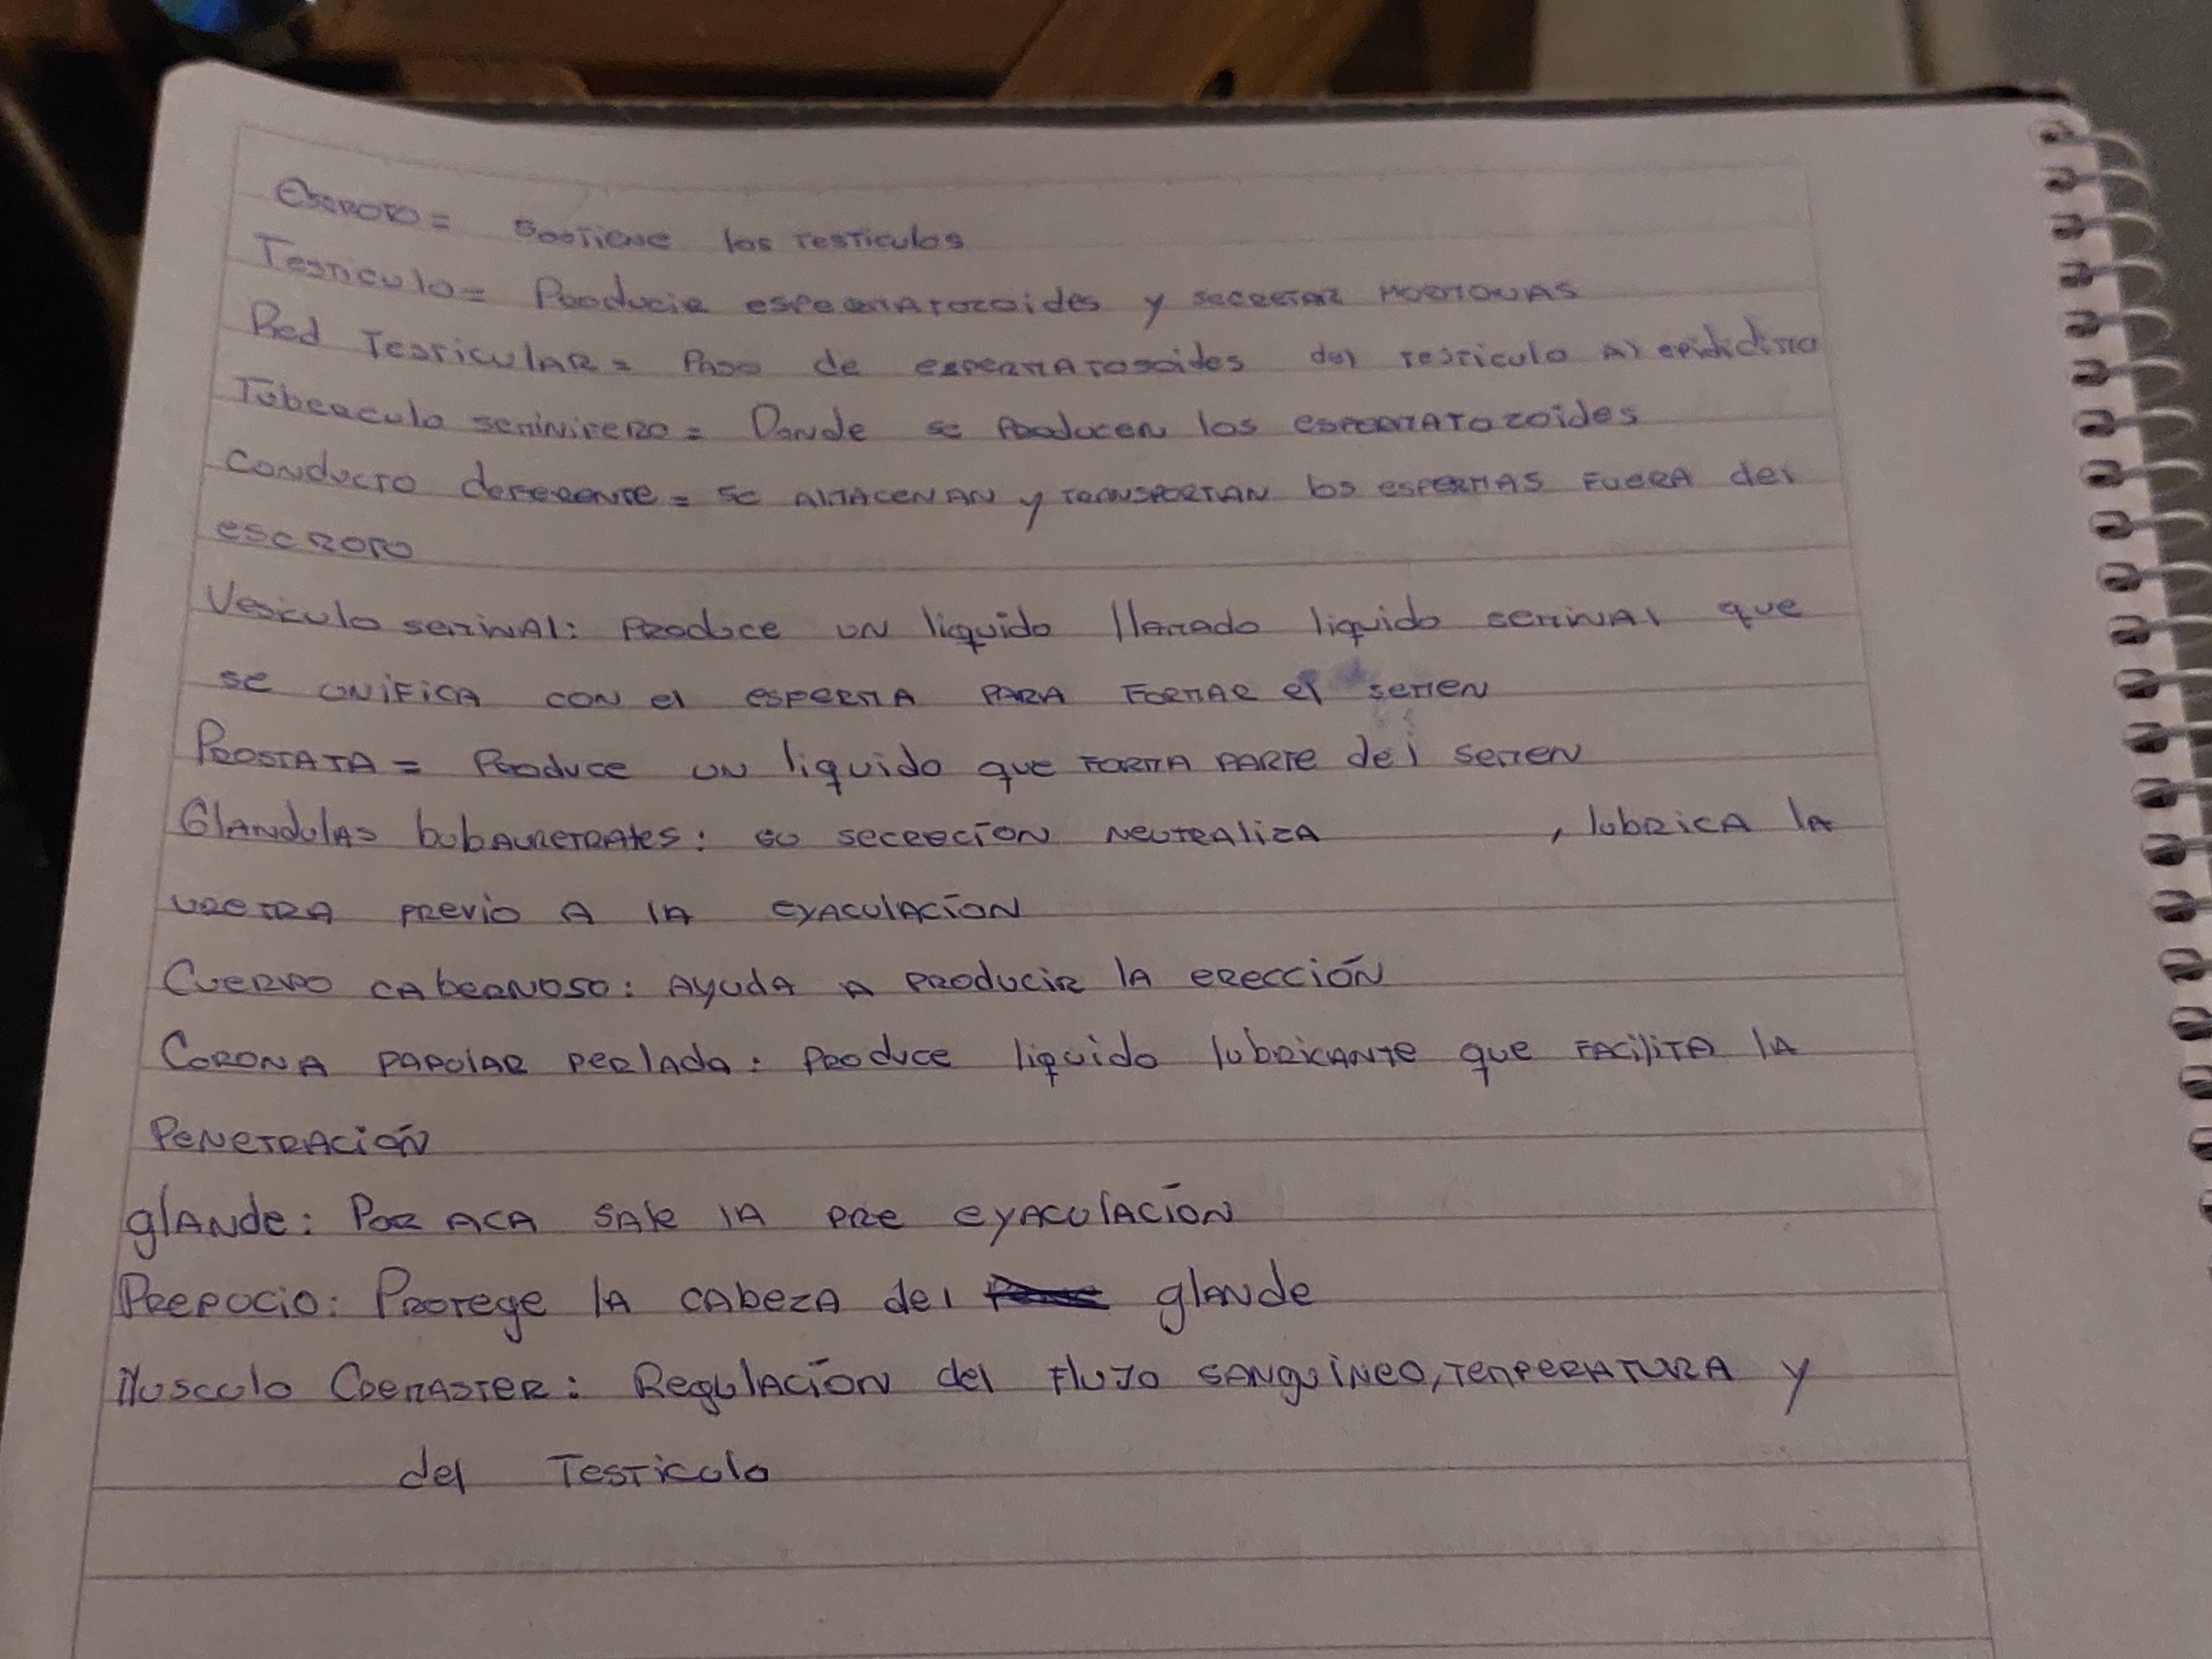 Escroto = Sostiene los testiculos
Testiculo = Producir espermatozoides y secretar hormonas
Red Testicular = Paso de espermatosoides del testiculo al epididimo
Tuberculo seminifero = Donde se producen los espermatozoides
Conducto deferente = se almacenan y transportan los espermas fuera del
escroto
Vesiculo seminal: Produce un liquido llamado liquido seminal que
se unifica con el esperma para formar el semen
Prostata = Produce un liquido que forma parte del semen
Glandulas bubauretrales: su secreción neutraliza , lubrica la
uretra previo a la eyaculación
Cuerpo cabernoso: Ayuda a producir la erección
Corona papular perlada: Produce liquido lubricante que facilita la
Penetración
glande: Por aca sale la pre eyaculación
Prepucio: Protege la cabeza del glande
Musculo Cremaster: Regulación del flujo sanguíneo, temperatura y
del Testiculo